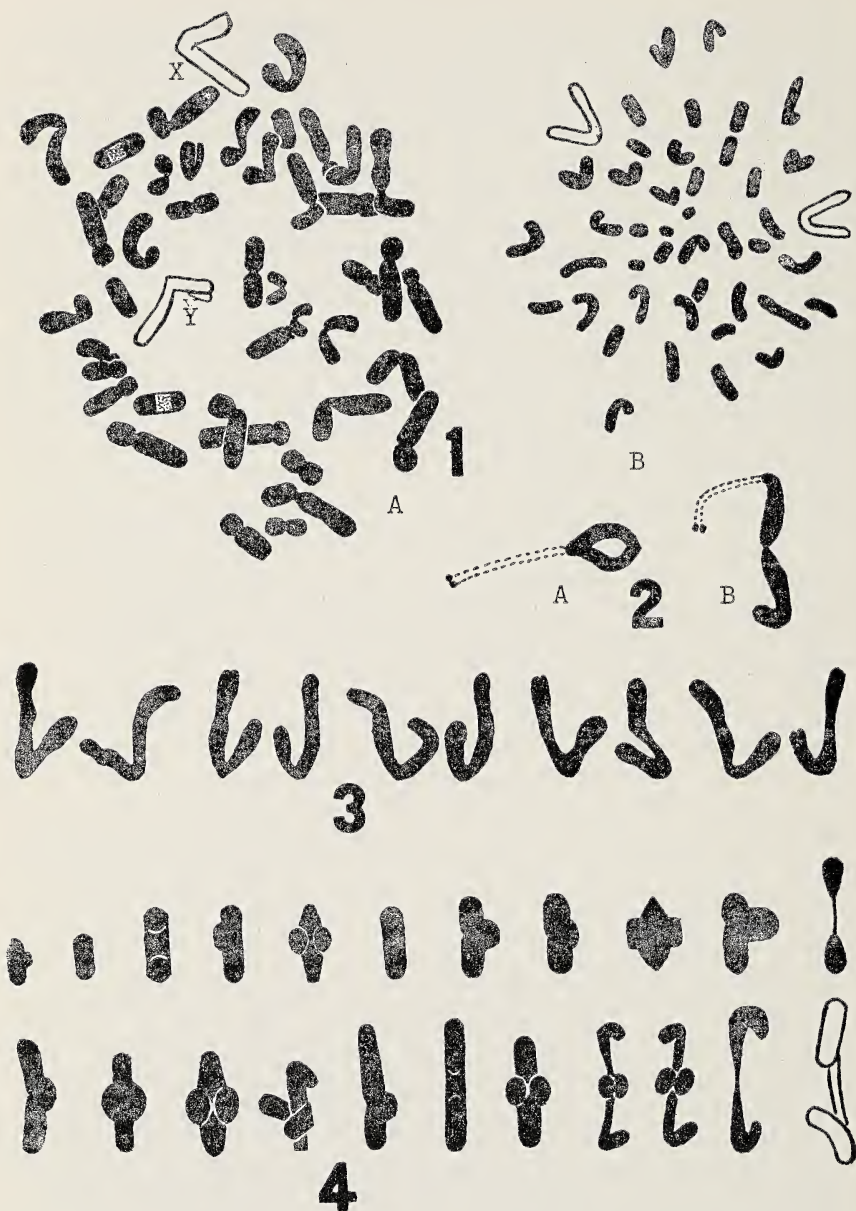 X
Y
1
A
B
A
2
B
3
4